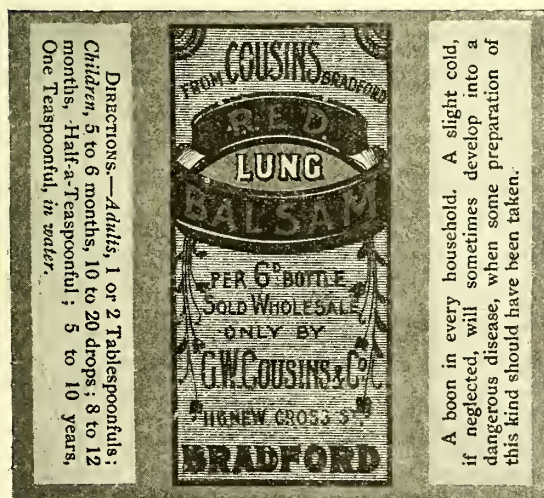 DIRECTIONS.—Adults, 1 or 2 Tablespoonfuls;
Children, 5 to 6 months, 10 to 20 drops; 8 to 12
months, Half-a-Teaspoonful; 5 to 10 years,
One Teaspoonful, in water.
FROM COUSINS BRADFORD
RED
LUNG
BALSAM
PER 6D BOTTLE
SOLD WHOLESALE
ONLY BY
G.W. COUSINS & Co
NEW CROSS ST,
BRADFORD
A boon in every household. A slight cold,
if neglected, will sometimes develop into a
dangerous disease, when some preparation of
this kind should have been taken.